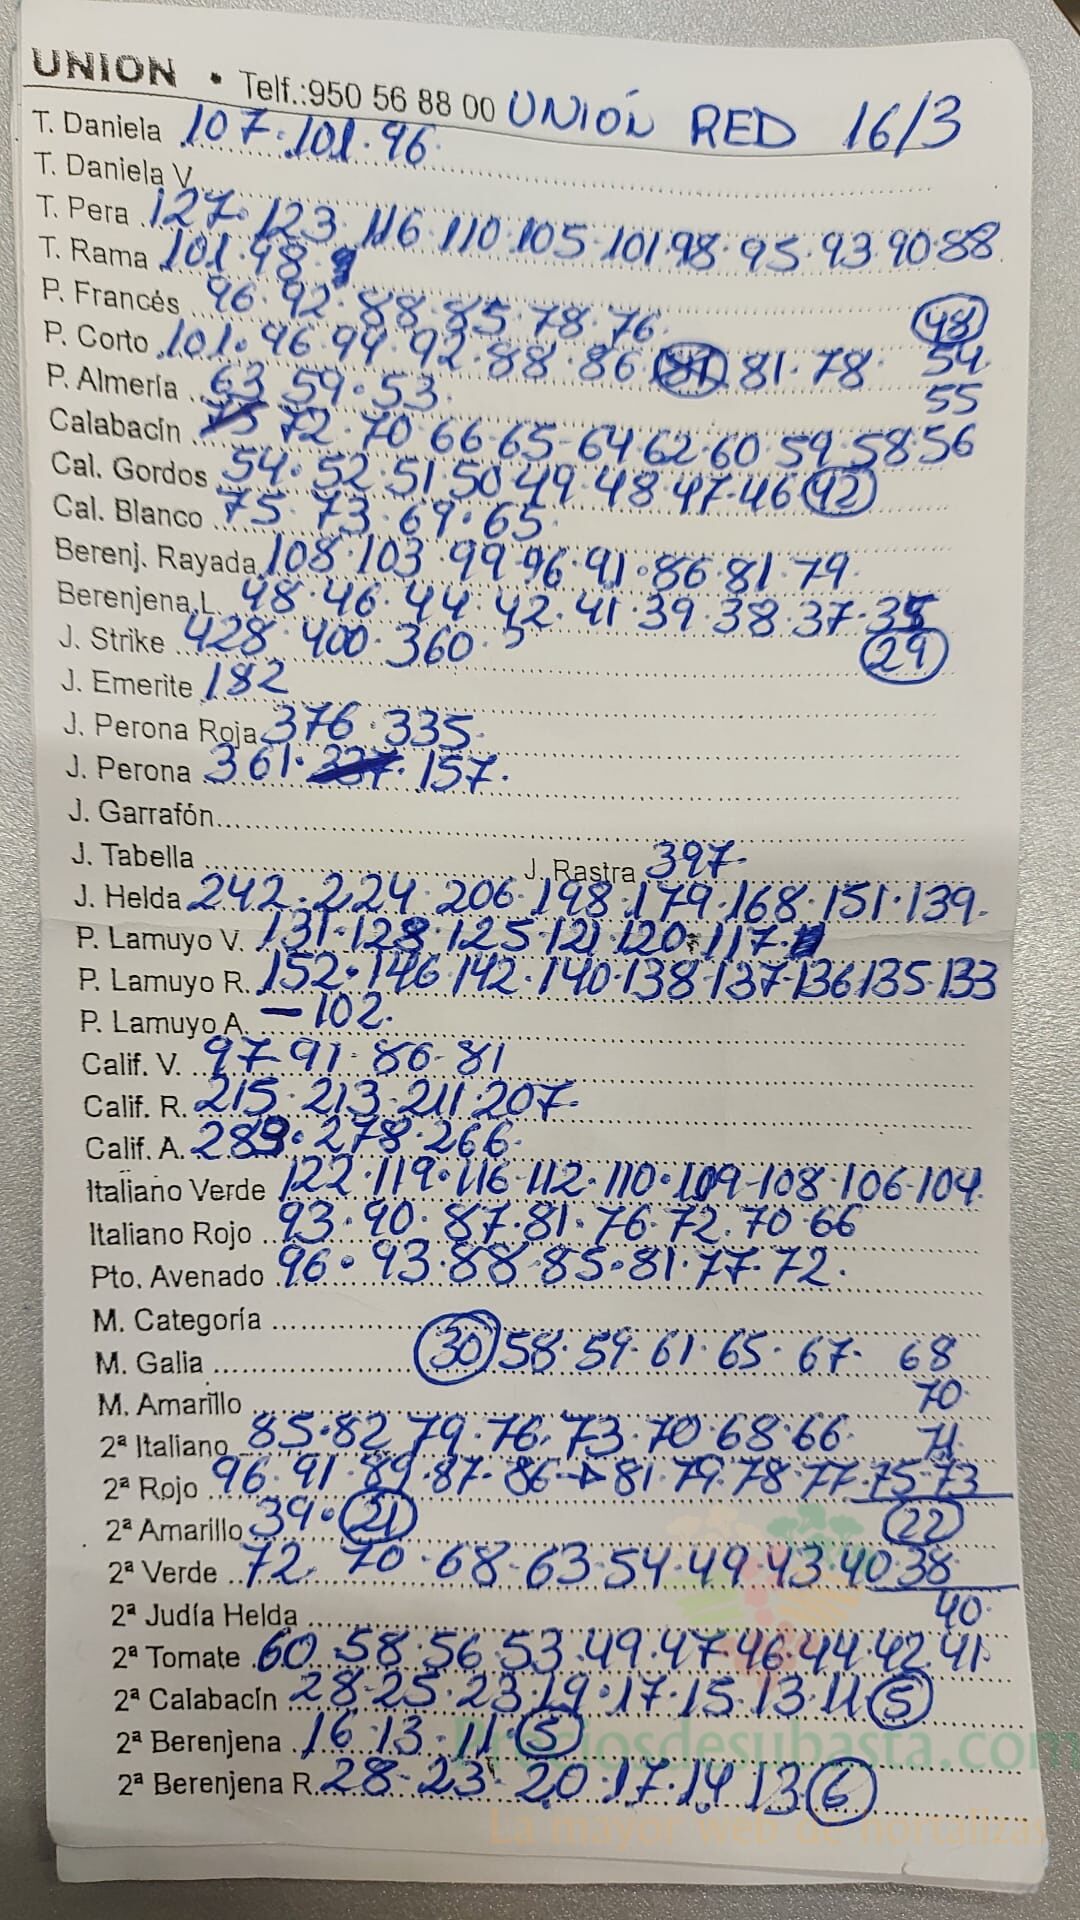 UNION • Telf.:950 56 88 00 UNIÓN RED 16/3
T. Daniela 107·101·96·
T. Daniela V.
T. Pera 127·123·116·110·105·101·98·95·93·90·88
T. Rama 101·98·
P. Francés 96·92·88·85·78·76· (48)
P. Corto 101·96·94·92·88·86·(81)·81·78· 54
P. Almería 63·59·53· 55
Calabacín 72·70·66·65·64·62·60·59·58·56
Cal. Gordos 54·52·51·50·49·48·47·46 (42)
Cal. Blanco 75·73·69·65·
Berenj. Rayada 108·103·99·96·91·86·81·79·
Berenjena L. 48·46·44·42·41·39·38·37·35
J. Strike 428·400·360· (29)
J. Emerite 182
J. Perona Roja 376·335·
J. Perona 361·337·157·
J. Garrafón
J. Tabella J. Rastra 397·
J. Helda 242·224·206·198·179·168·151·139·
P. Lamuyo V. 131·128·125·121·120·117·
P. Lamuyo R. 152·146·142·140·138·137·136·135·133
P. Lamuyo A. —102·
Calif. V. 97·91·86·81
Calif. R. 215·213·211·207·
Calif. A. 289·278·266·
Italiano Verde 122·119·116·112·110·109·108·106·104·
Italiano Rojo 93·90·87·81·76·72·70·66
Pto. Avenado 96·93·88·85·81·77·72·
M. Categoría
M. Galia (30) 58·59·61·65·67· 68
M. Amarillo 70·
2ª Italiano 85·82·79·76·73·70·68·66· 71·
2ª Rojo 96·91·89·87·86→81·79·78·77·75·73
2ª Amarillo 39·(21) (22)
2ª Verde 72·70·68·63·54·49·43·40·38
2ª Judía Helda 40·
2ª Tomate 60·58·56·53·49·47·46·44·42·41·
2ª Calabacín 28·25·23·19·17·15·13·11·(5)
2ª Berenjena 16·13·11·(5)
Preciosdesubasta.com
2ª Berenjena R. 28·23·20·17·14·13·(6)
La mayor web de hortalizas